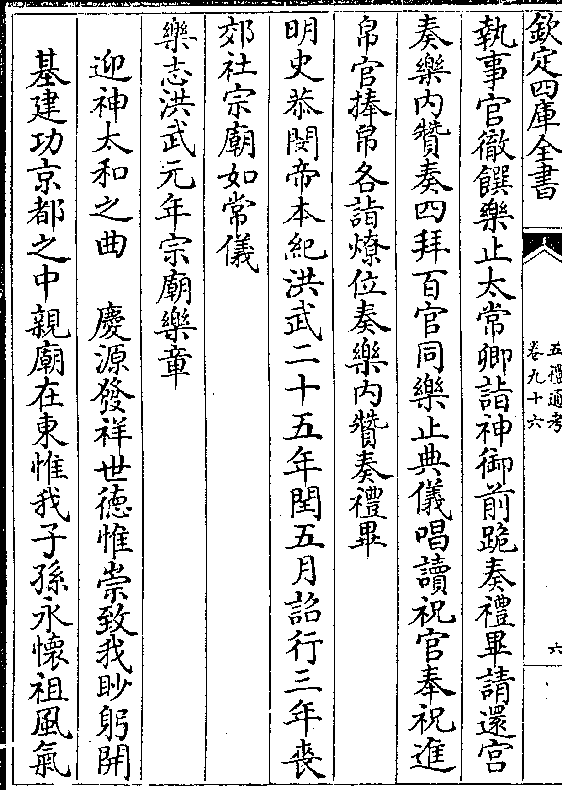 欽定四庫全書
五禮通考
卷九十六
六
執事官徹饌樂止太常卿詣神御前跪奏禮畢請還宮
奏樂内贊奏四拜百官同樂止典儀唱讀祝官奉祝進
帛官捧帛各詣燎位奏樂内贊奏禮畢
明史恭閔帝本紀洪武二十五年閏五月詔行三年喪
郊社宗廟如常儀
樂志洪武元年宗廟樂章
迎神太和之曲　慶源發祥世德惟崇致我眇躬開
基建功京都之中親廟在東惟我子孫永懷祖風氣